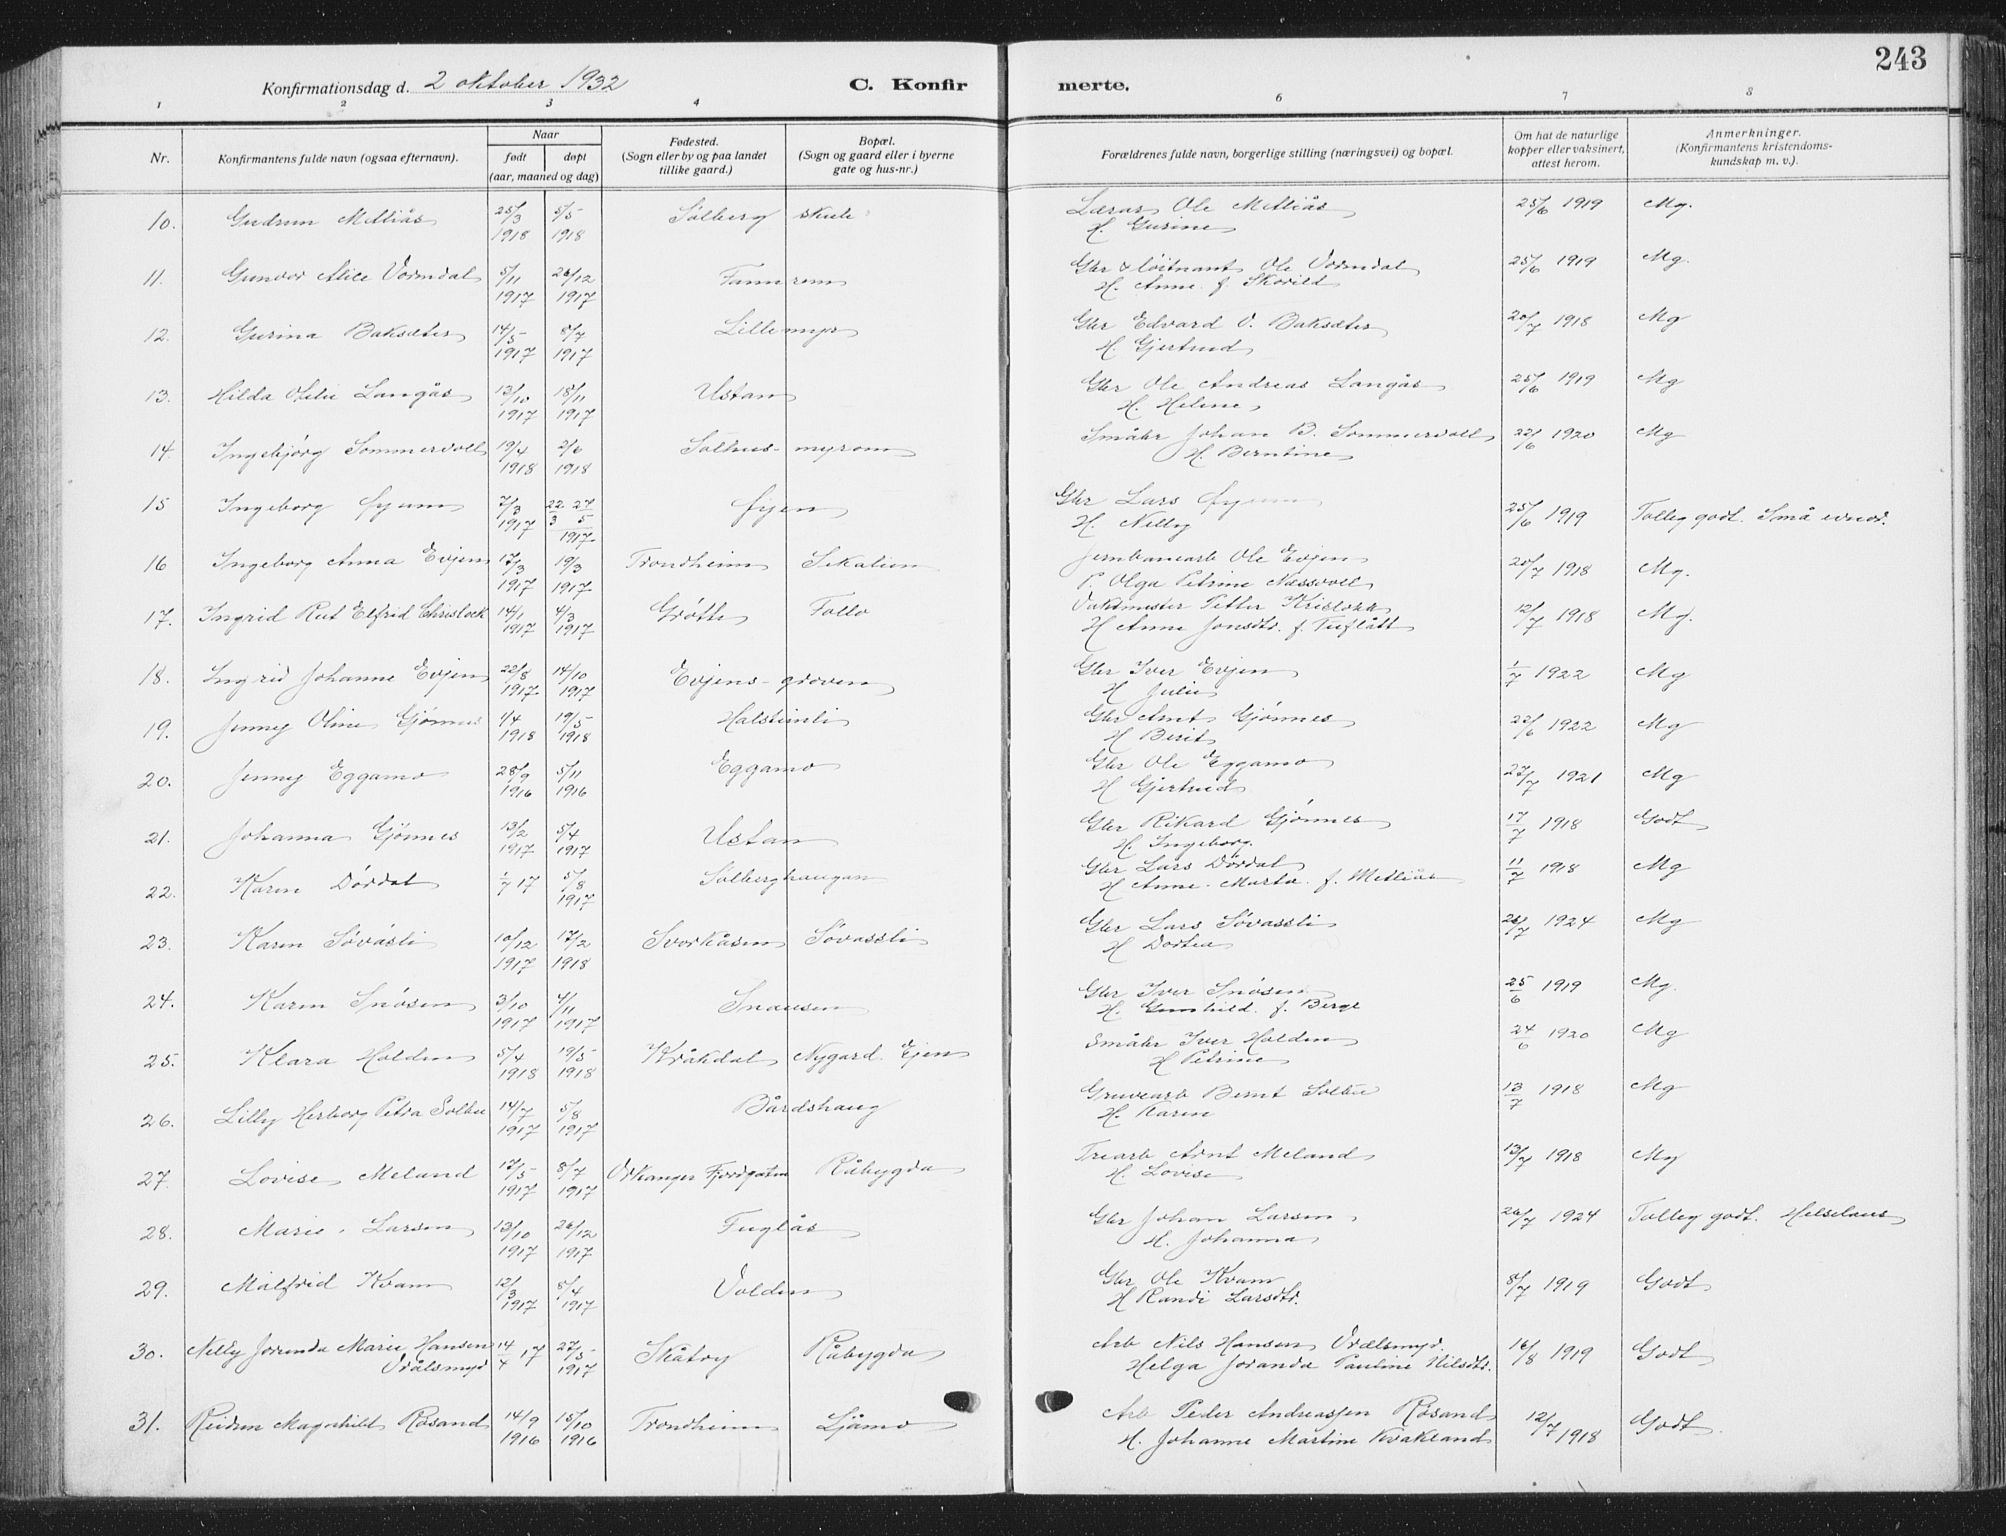 243
Konfirmationsdag d. 2 oktober 1932
C. Konfir merte.
1 2 3 4 6 7 8
Nr.
Konfirmantens fulde navn (ogsaa efternavn).
Naar
født
døpt
(aar, maaned og dag)
Fødested.
(Sogn eller by og paa landet
tillike gaard.)
Bopæl.
(Sogn og gaard eller i byerne
gate og hus-nr.)
Forældrenes fulde navn, borgerlige stilling (næringsvei) og bopæl.
Om hat de naturlige
kopper eller vaksinert,
attest herom.
Anmerkninger.
(Konfirmantens kristendoms-
kundskap m. v.).
10. Gudrun Metliås 25/3 5/5 Solberg skule Lærar Ole Metliås 25/6 1919 Mg.
1918 1918 H. Gurine
11. Gunvor Alice Vormdal 5/11 26/12 Fannrem Gbr & løitnant Ole Vormdal 25/6 1919 Mg.
1917 1917 H. Anne f. Skorild
12. Gurina Baksæter 14/5 8/7 Lillemyr Gbr Edvard O. Baksæter 20/7 1918 Mg
1917 1917 H. Gjertrud
13. Hilda Ofelie Langås 13/10 18/11 Ustan Gbr Ole Andreas Langås 25/6 1919 Mg
1917 1917 H. Helene
14. Ingebjörg Sommervoll 19/4 2/6 Solhus-myrom Småbr Johan B. Sommervoll 22/6 1920 Mg
1918 1918 H. Berntine
15 Ingeborg Øyum 7/3 22/3 27/5 Øyen Gbr Lars Øyum 25/6 1919 Tolleg godt. Små evner.
1917 1917 H. Nelly
16 Ingeborg Anna Evjen 17/3 19/3 Trondheim Sikalien Jernbanearb Ole Evjen 20/7 1918 Mg.
1917 1917 P. Olga Petrine Næssvoll
17. Ingrid Rut Elfrid Christock 14/1 4/3 Gröthe Follo Vaktmester Petter Kristokk 12/7 1918 Mg.
1917 1917 H Anne Jonsdtr. f. Tuflått
18. Ingrid Johanne Evjen 22/8 14/10 Evjens-groven Gbr Iver Evjen 1/7 1922 Mg
1917 1917 H Julie
19. Jenny Oline Gjönnes 1/4 19/5 Halsteinli Gbr Arnt Gjönnes 22/6 1922 Mg
1918 1918 H Berit
20. Jenny Eggamo 28/9 5/11 Eggamo Gbr Ole Eggamo 27/7 1921 Mg
1916 1916 H Gjertrud
21. Johanna Gjönnes 13/2 5/4 Ustan Gbr Rikard Gjönnes 17/7 1918 Godt
1917 1917 H. Ingeborg.
22. Karen Dördal 1/7 17 5/8 Solberghaugan Gbr Lars Dördal 11/7 1918 Mg
1917 H Anne. Marta f. Metliås
23. Karen Sövåsli 10/12 17/2 Svorkåsen Sövassli Gbr Lars Sövassli 26/7 1924 Mg
1917 1918 H Dortea
24. Karen Snösen 3/10 4/11 Snausen Gbr Iver Snösen 25/6 1919 Mg.
1917 1917 H. Gunhild f. Berge
25. Klara Holden 5/4 19/5 Kråkdal Nygard. Ejen Småbr Iver Holden 24/6 1920 Mg
1918 1918 H Petrine
26. Lilly Herborg Petra Solbu 14/7 5/8 Bårdshaug Gruvearb Bernt Solbu 13/7 1918 Mg
1917 1917 H. Karen
27. Lovise Meland 17/5 8/7 Orkanger Fjordgaten Råbygda Trearb Arnt Meland 13/7 1918 Mg
1917 1917 H. Lovise
28. Marie Larsen 13/10 26/12 Fuglås Gbr Johan Larsen 26/7 1924 Tolleg godt. Helselaus
1917 1917 H. Johanna
29. Målfrid Kvam 12/3 8/4 Volden Gbr Ole Kvam 8/7 1919 Godt
1917 1917 H Randi Larsdtr.
30. Nelly Jorunda Marie Hansen 14/4 17 27/5 Skåtøy Råbygda Arb Nils Hansen Vrålsmyd. 16/8 1919 Godt
Vrålsmyd 1917 Helga Joranda Pauline Nilsdtr.
31. Reidun Magnhild Rösand 14/9 15/10 Trondheim Ljåmo Arb Peder Andreassen Rösand 12/7 1918 Godt.
1916 1916 H. Johanne Martine Kvakland